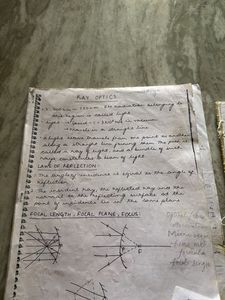 RAY OPTICS
EM radiation belonging to
this region is called light.
in vacuum
travels in a straight line
A light wave travels from one point to another
along a straight line joining them. The path is
called a ray of light, and a bundle of such
rays constitutes a beam of light.
LAWS OF REFLECTION:
The angle of incidence is equal to the angle of
reflection.
The incident ray, the reflected ray and the
normal to the reflecting surface at the
point of incidence lie in the same plane
FOCAL LENGTH, FOCAL PLANE, FOCUS:
formula
focal length